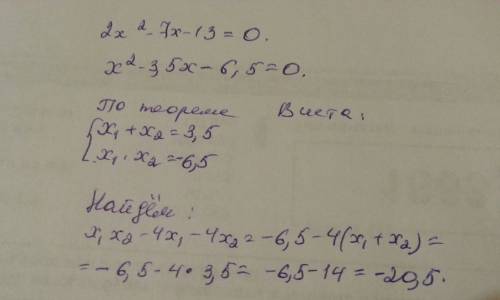 2x² - 7x - 13 = 0.
x² - 3,5x - 6,5 = 0.
По теореме Виета:
{x₁ + x₂ = 3,5
x₁ · x₂ = -6,5
Найдём:
x₁x₂ - 4x₁ - 4x₂ = -6,5 - 4(x₁ + x₂) =
= -6,5 - 4 · 3,5 = -6,5 - 14 = -20,5.